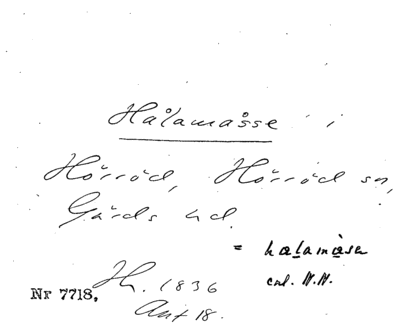 Hålamåsse i
Hörröd, Hörröd sn,
Gärds hd.
= halamåsen
enl. N.N.
Nr 7718, Th. 1836
Ant 18.